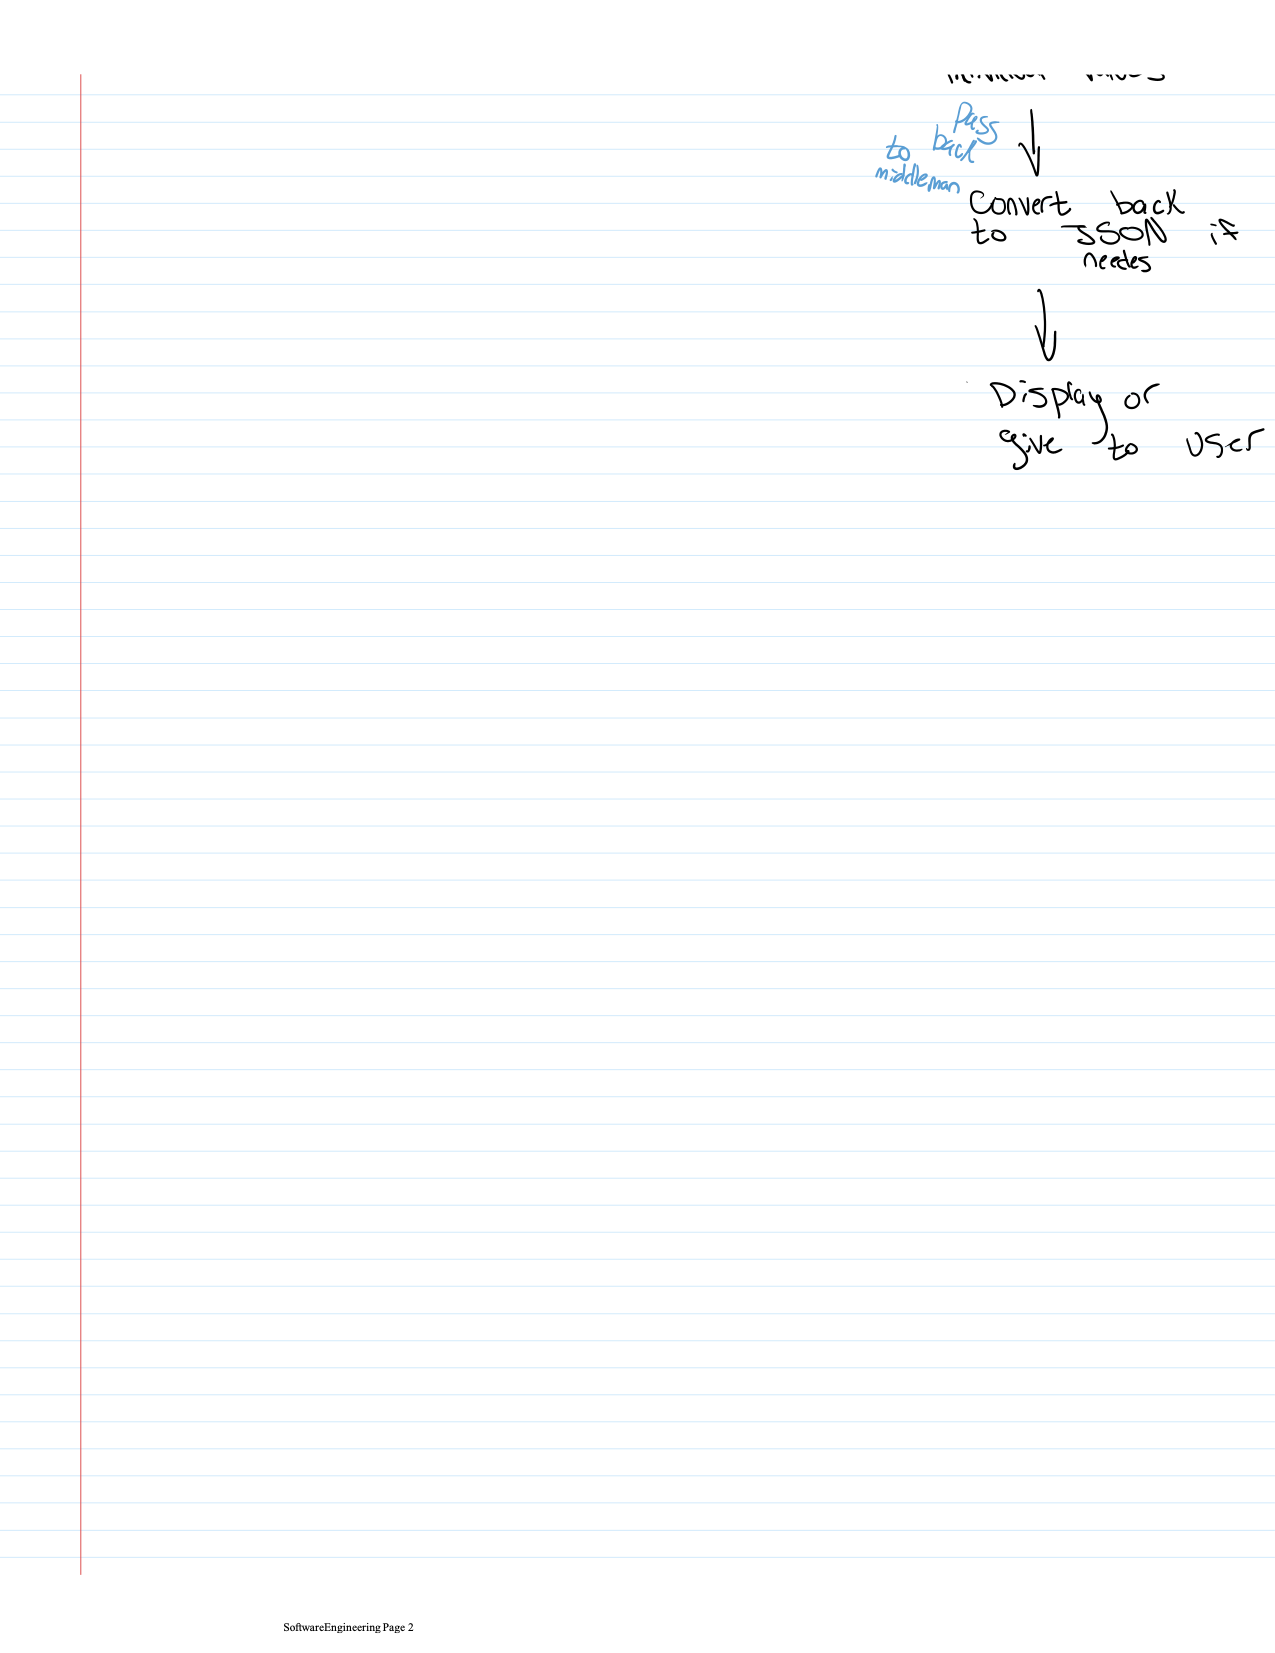 Pass
back
to
middleman
Convert back
to JSON if
needes
Display or
give to user
SoftwareEngineering Page 2